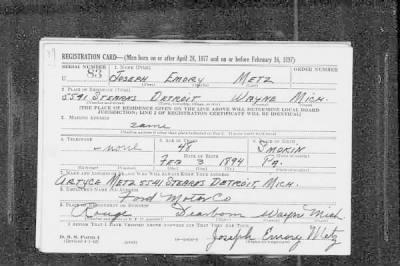 REGISTRATION CARD—(Men born on or after April 28, 1877 and on or before February 16, 1897)
SERIAL NUMBER 1. NAME (Print) ORDER NUMBER
U 83 JOSEPH EMORY METZ
(First) (Middle) (Last)
2. PLACE OF RESIDENCE (Print)
5541 STEARNS DETROIT WAYNE MICH.
(Number and street) (Town, township, village, or city) (County) (State)
[THE PLACE OF RESIDENCE GIVEN ON THE LINE ABOVE WILL DETERMINE LOCAL BOARD
JURISDICTION; LINE 2 OF REGISTRATION CERTIFICATE WILL BE IDENTICAL]
3. MAILING ADDRESS
same
(Mailing address if other than place indicated on line 2. If same insert word same)
4. TELEPHONE 5. AGE IN YEARS 6. PLACE OF BIRTH
none 48
DATE OF BIRTH
FEB 3 1894 PA.
(Mo.) (Day) (Yr.)
7. NAME AND ADDRESS OF PERSON WHO WILL ALWAYS KNOW YOUR ADDRESS
METZ 5541 STEARNS DETROIT, MICH.
8. EMPLOYER'S NAME AND ADDRESS
Ford Motor Co
9. PLACE OF EMPLOYMENT OR BUSINESS
Rouge Dearborn Wayne Mich
I AFFIRM THAT I HAVE VERIFIED ABOVE ANSWERS AND THAT THEY ARE TRUE.
D. S. S. Form 1
Joseph Emory Metz